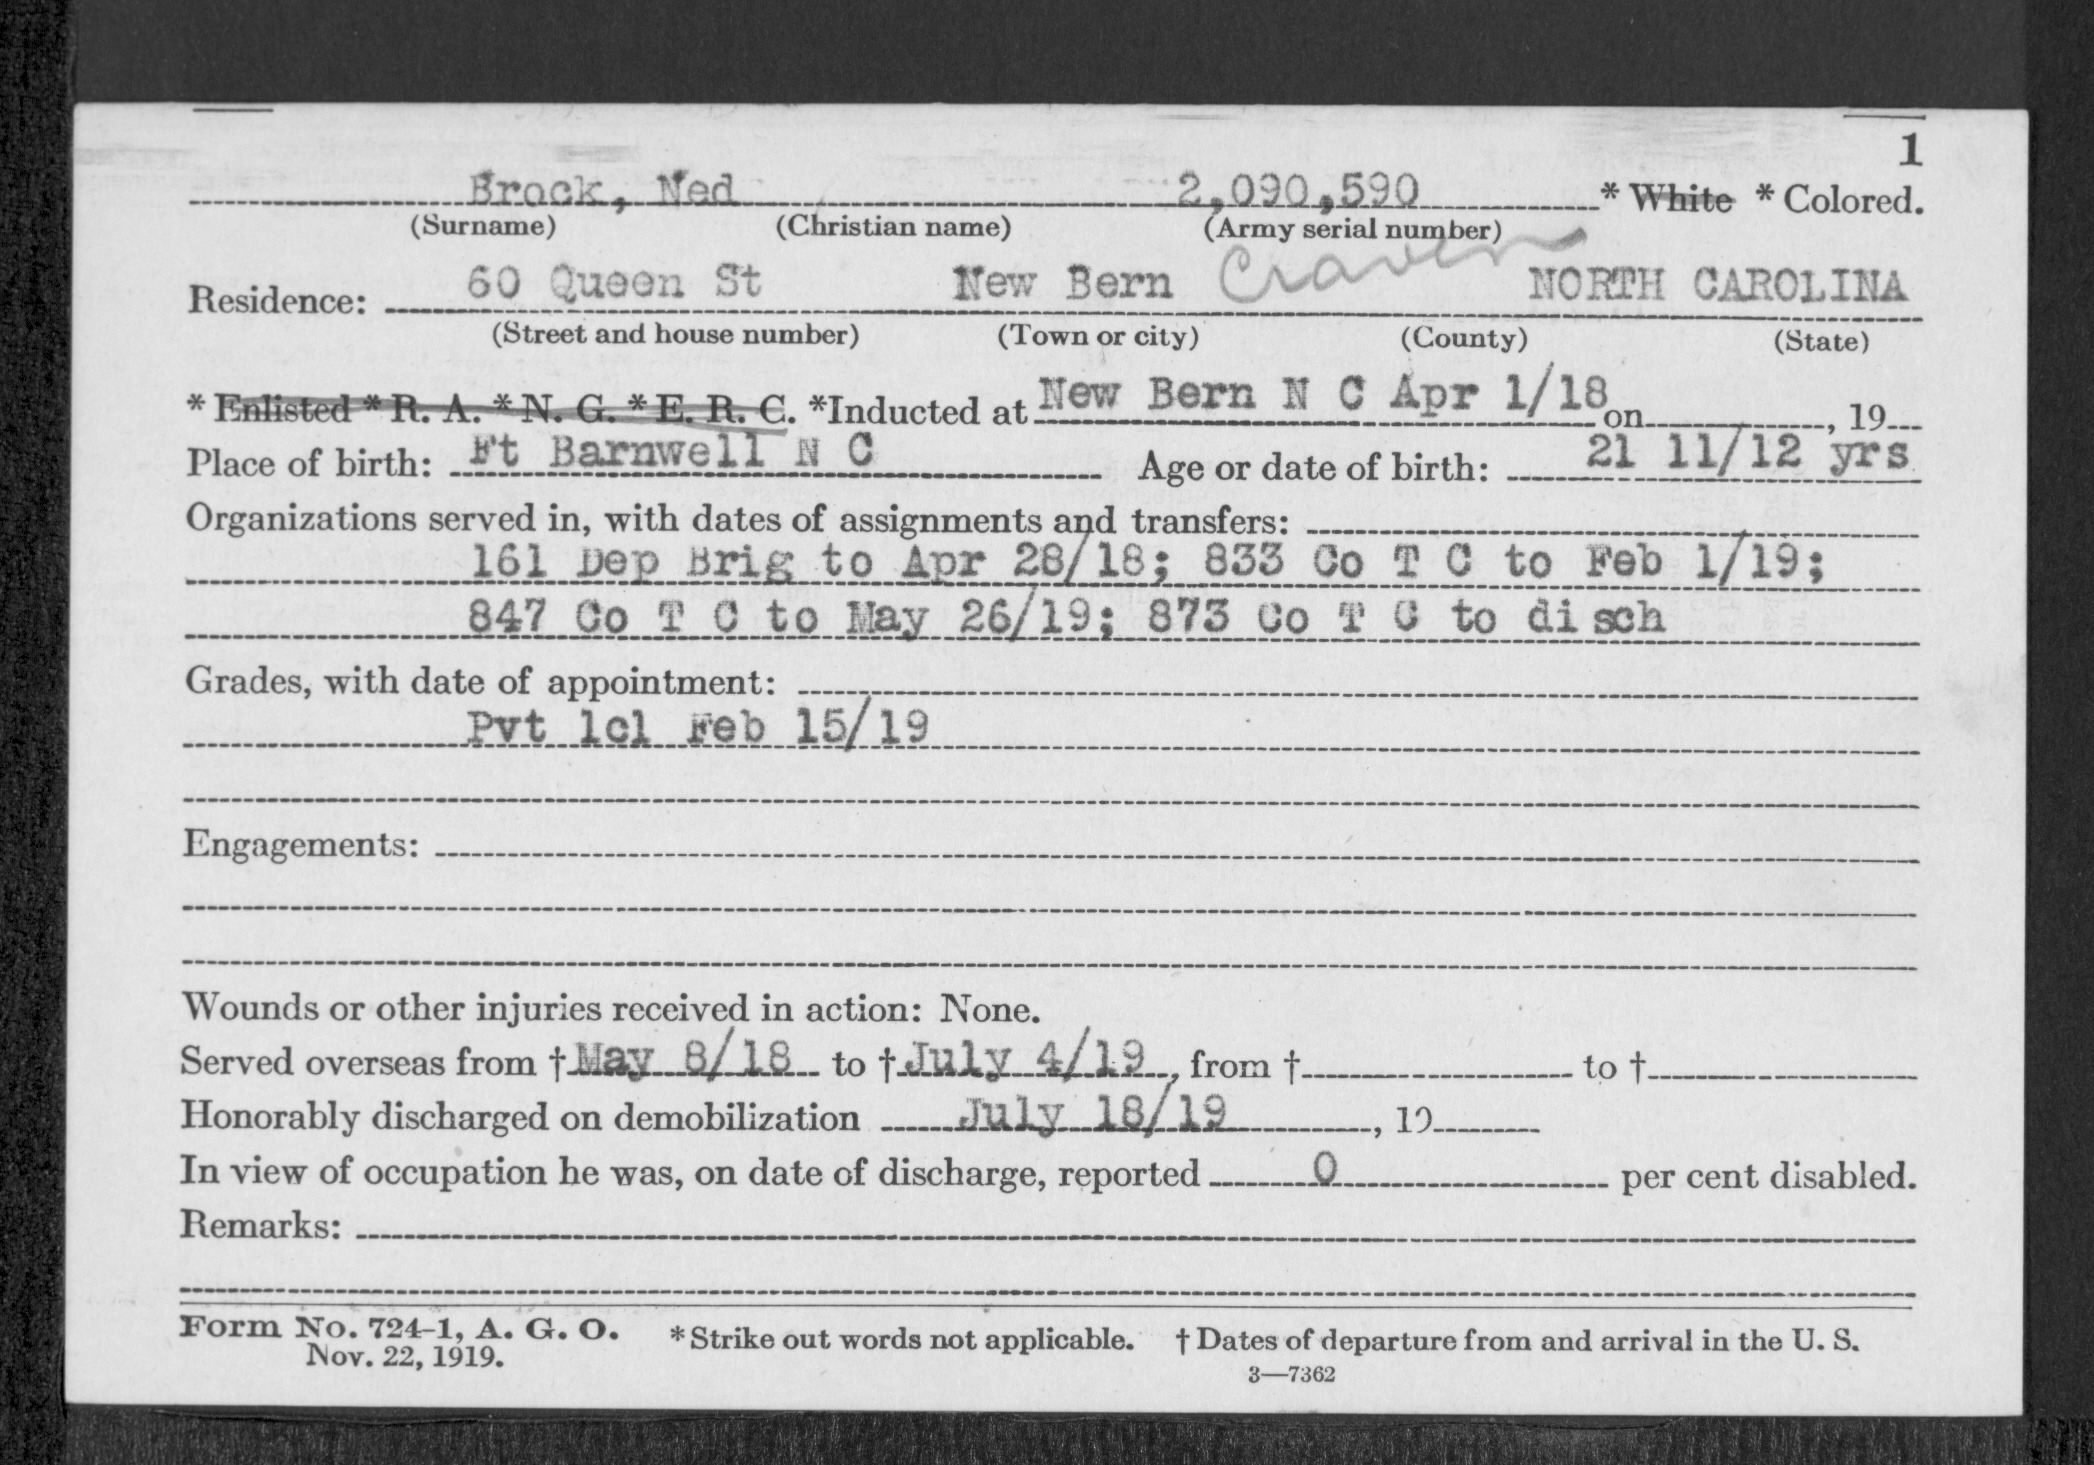 1
Brock, Ned 2,090,590 * White * Colored.
(Surname) (Christian name) (Army serial number)
Residence: 60 Queen St New Bern Craven NORTH CAROLINA
(Street and house number) (Town or city) (County) (State)
* Enlisted * R. A. * N. G. * E. R. C. *Inducted at New Bern N C Apr 1/18 on , 19
Place of birth: Ft Barnwell N C Age or date of birth: 21 11/12 yrs
Organizations served in, with dates of assignments and transfers:
161 Dep Brig to Apr 28/18; 833 Co T C to Feb 1/19;
847 Co T C to May 26/19; 873 Co T C to disch
Grades, with date of appointment:
Pvt 1cl Feb 15/19
Engagements:
Wounds or other injuries received in action: None.
Served overseas from † May 8/18 to † July 4/19, from † to †
Honorably discharged on demobilization July 18/19, 19
In view of occupation he was, on date of discharge, reported 0 per cent disabled.
Remarks:
Form No. 724-1, A. G. O. * Strike out words not applicable. † Dates of departure from and arrival in the U. S.
Nov. 22, 1919.
3—7362